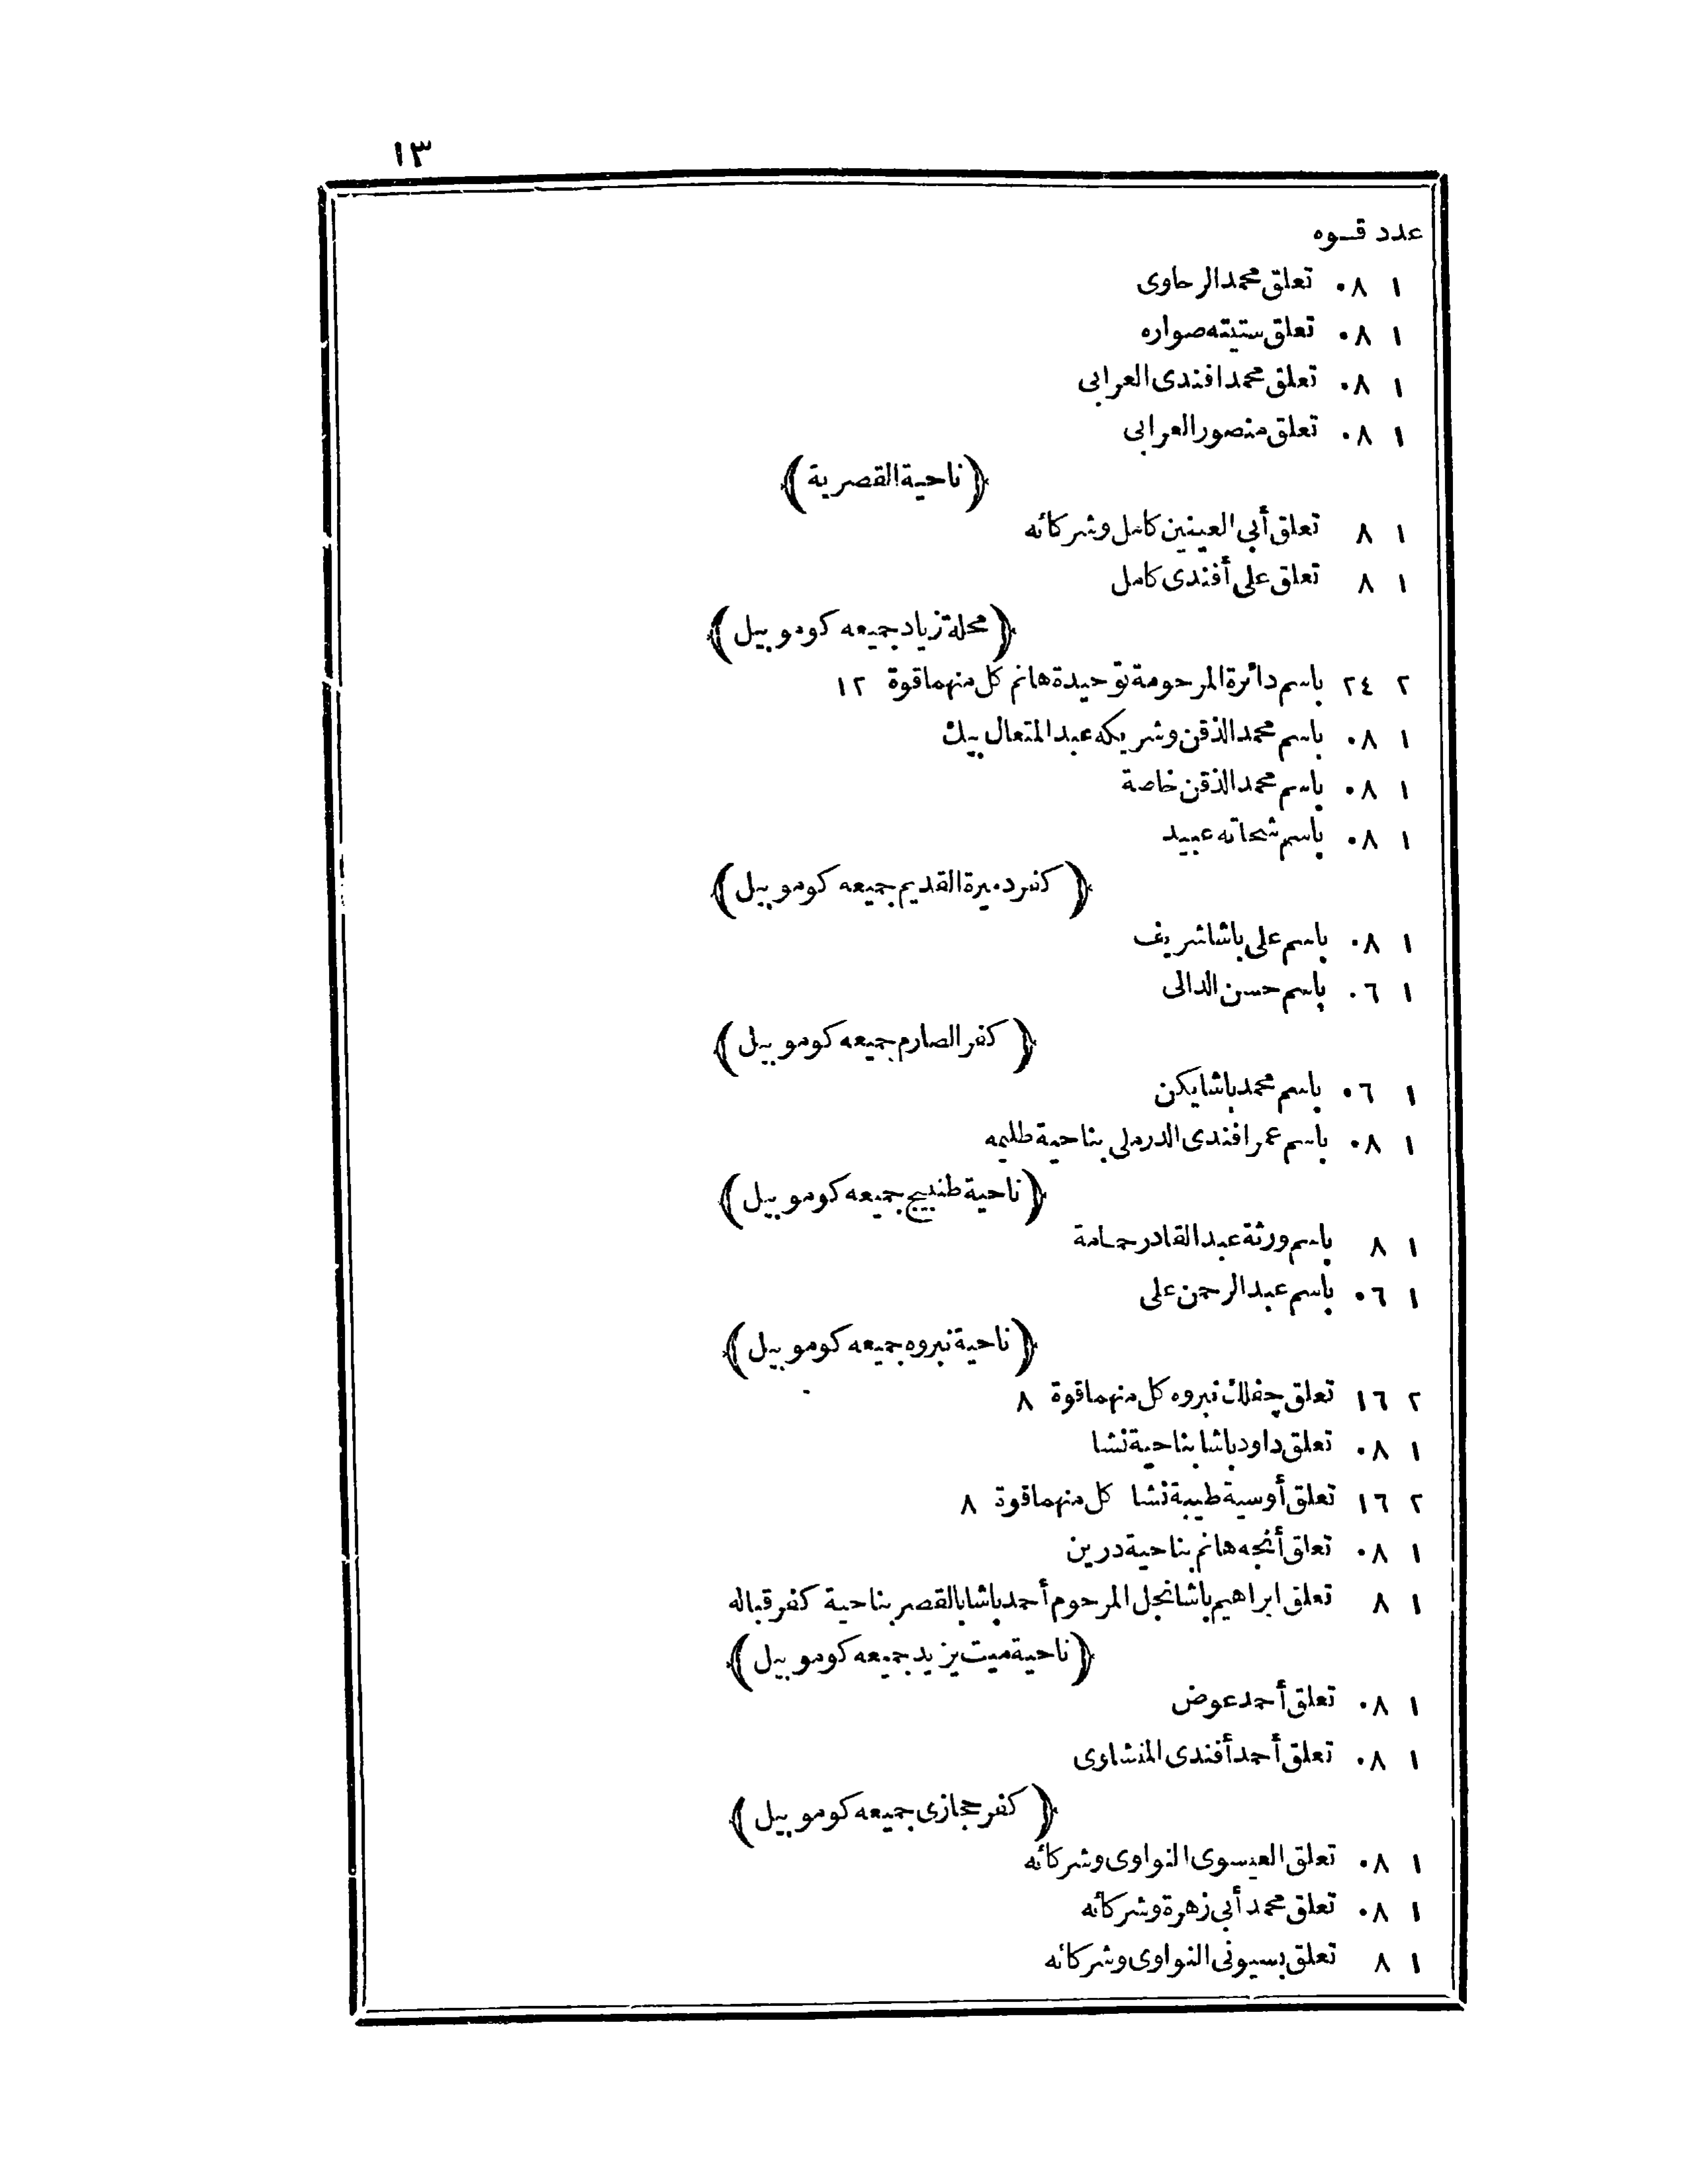 ١٣
عدد قوه
١ ٠٨ تعلق محمد الرحاوى
١ ٠٨ تعلق ستيته صواره
١ ٠٨ تعلق محمد افندى العرابى
١ ٠٨ تعلق منصور العرابى
(ناحية القصرية)
١ ٨ تعلق أبى العينين كامل وشركائه
١ ٨ تعلق على أفندى كامل
(محلة زياد جميعه كوموبيل)
٢ ٢٤ باسم دائرة المرحومة توحيدة هانم كل منهما قوة ١٢
١ ٠٨ باسم محمد الذقن وشريكه عبد المتعال بيك
١ ٠٨ باسم محمد الذقن خاصة
١ ٠٨ باسم شحاته عبيد
(كفر دميرة القديم جميعه كوموبيل)
١ ٠٨ باسم على باشا شريف
١ ٠٦ باسم حسن الدالى
(كفر الصارم جميعه كوموبيل)
١ ٠٦ باسم محمد باشا يكن
١ ٠٨ باسم عمر افندى الدرملى بناحية طليمه
(ناحية طنبيج جميعه كوموبيل)
١ ٨ باسم ورثة عبد القادر حمامة
١ ٠٦ باسم عبد الرحمن على
(ناحية نبروه جميعه كوموبيل)
٢ ١٦ تعلق چفلك نبروه كل منهما قوة ٨
١ ٠٨ تعلق داود باشا بناحية نشا
٢ ١٦ تعلق أوسية طيبة نشا كل منهما قوة ٨
١ ٠٨ تعلق أنجه هانم بناحية درين
١ ٨ تعلق ابراهيم باشا نجل المرحوم أحمد باشا بالقصر بناحية كفر قباله
(ناحية ميت يزيد جميعه كوموبيل)
١ ٠٨ تعلق أحمد عوض
١ ٠٨ تعلق أحمد أفندى المنشاوى
(كفر حجازى جميعه كوموبيل)
١ ٠٨ تعلق العيسوى النواوى وشركائه
١ ٠٨ تعلق محمد أبى زهرة وشركائه
١ ٨ تعلق بسيونى النواوى وشركائه